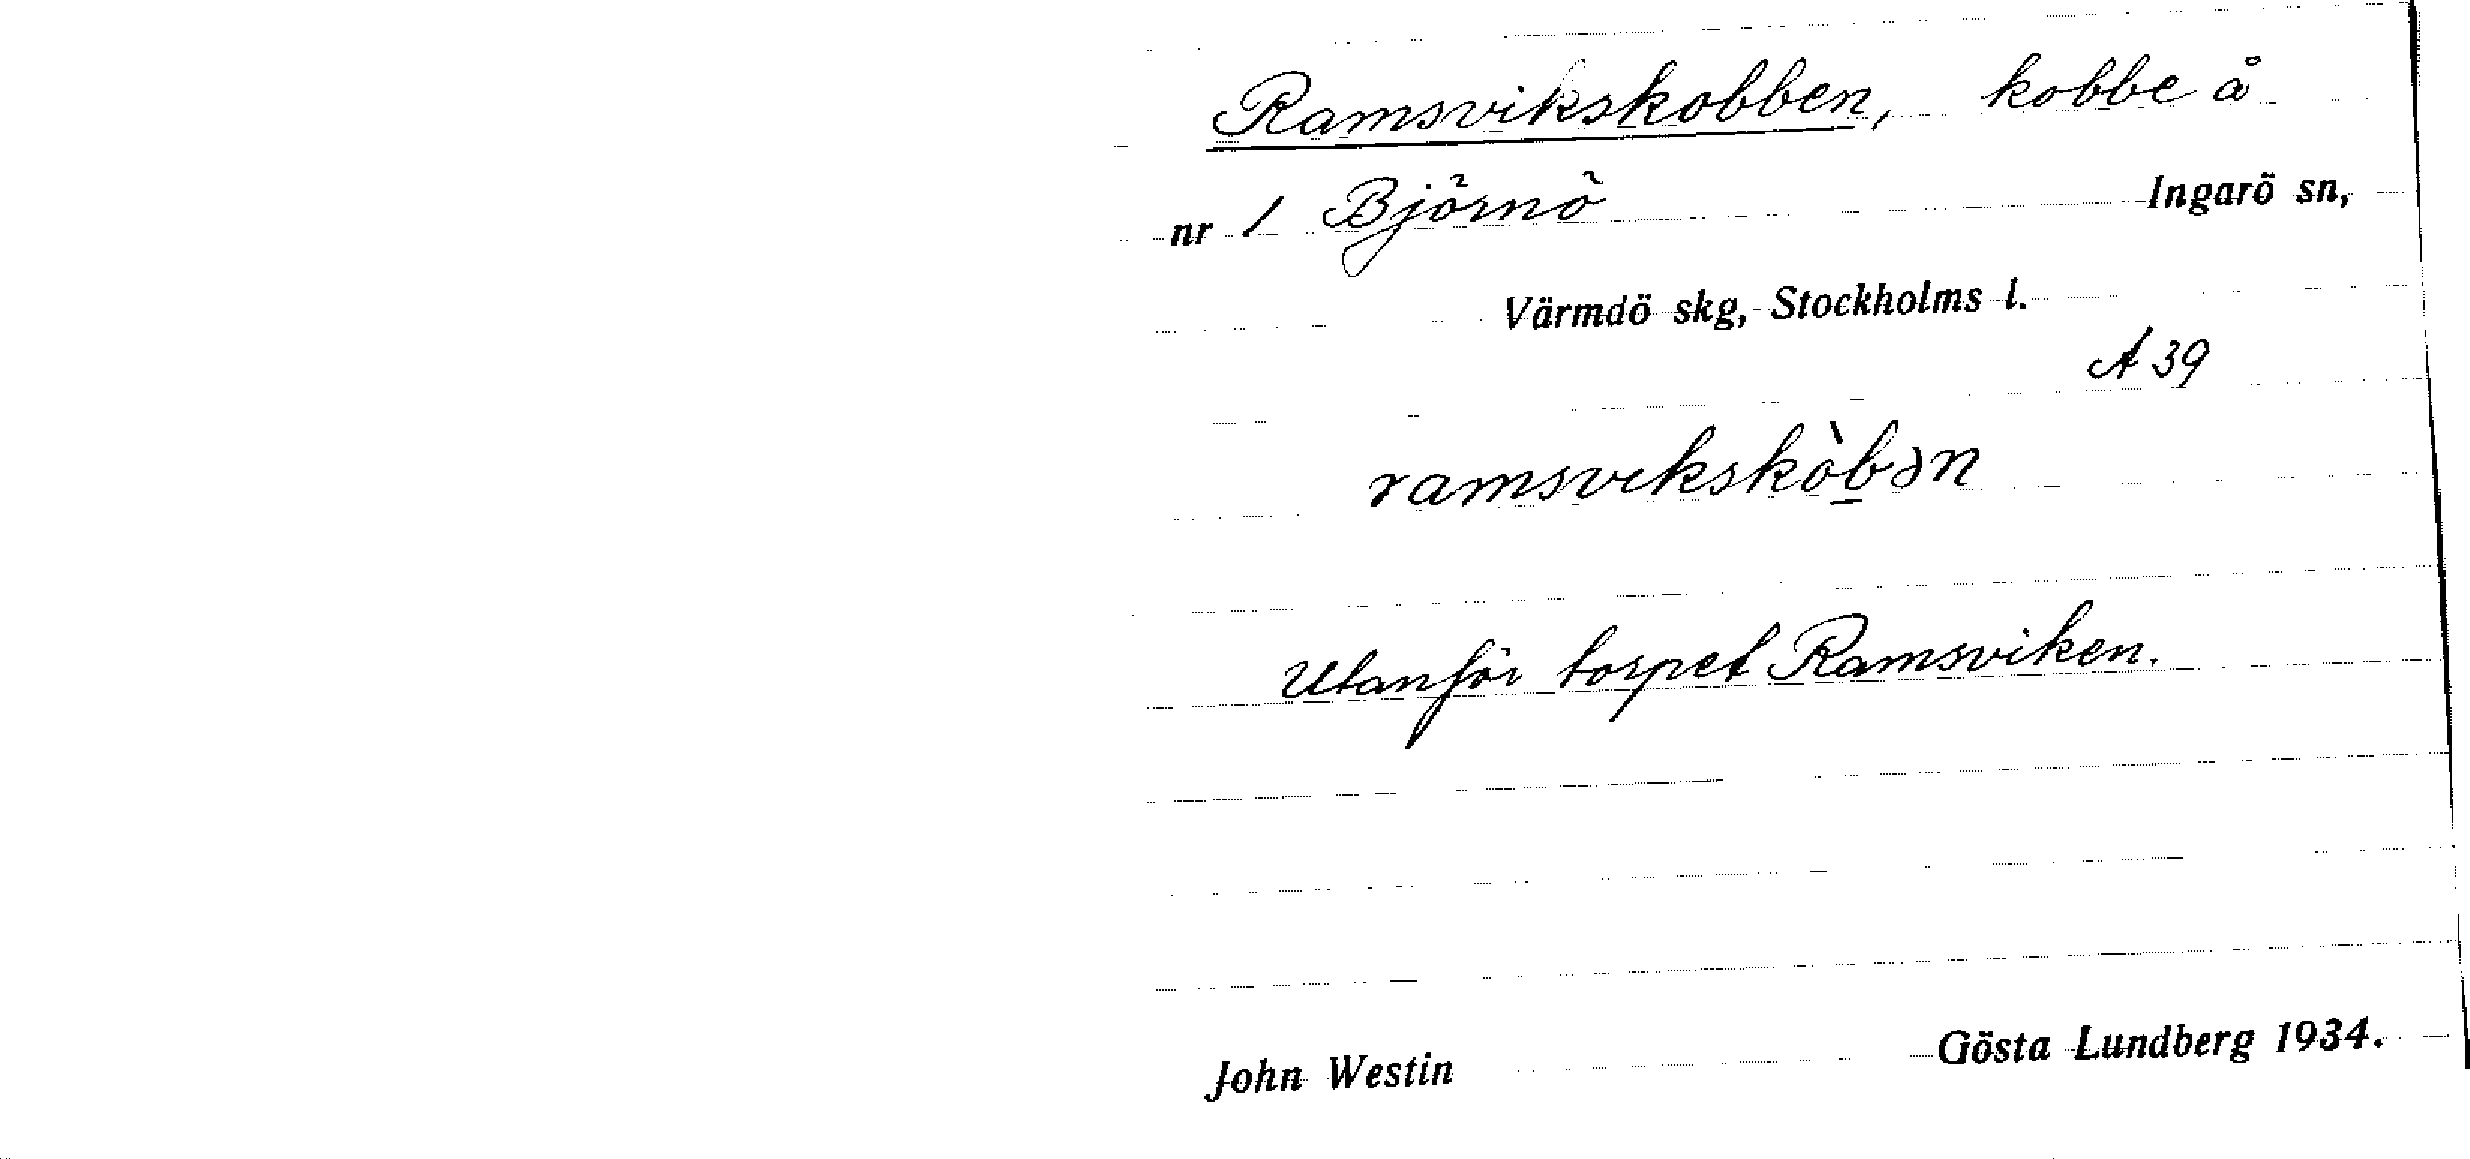 Ramsvikskobben, kobbe å
nr 1 Björnö Ingarö sn,
Värmdö skg, Stockholms l.
A 39
ramsvikskòb̲ən
Utanför torpet Ramsviken.
John Westin Gösta Lundberg 1934.